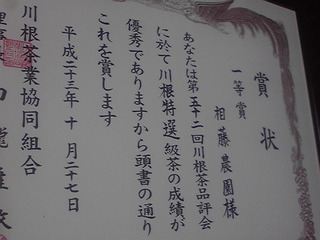 賞状
一等賞
相藤農園様
あなたは第五十二回川根茶品評会
に於て川根特選級茶の成績が
優秀でありますから頭書の通り
これを賞します
平成二十三年十月二十七日
川根茶業協同組合